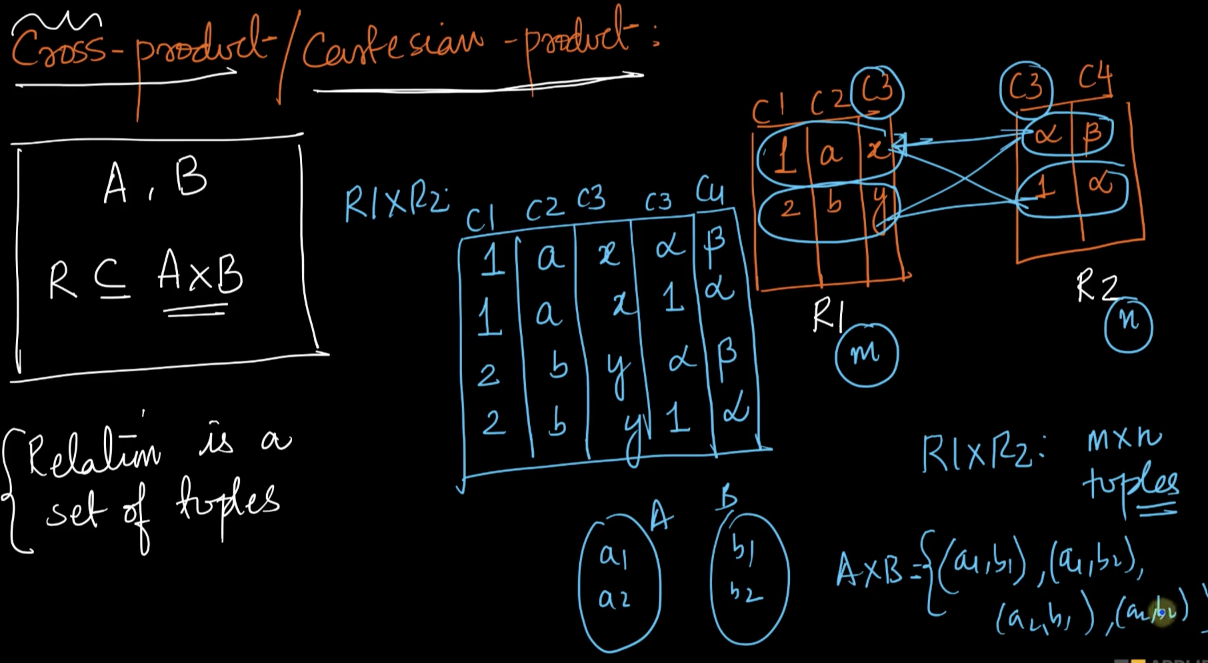 Cross-product/Cartesian-product:
A, B
R ⊆ A×B
{Relation is a
set of tuples
R1×R2:
C1 C2 C3 C3 C4
1 a x α β
1 a x 1 α
2 b y α β
2 b y 1 α
C1 C2 C3
1 a x
2 b y
R1
m
C3 C4
α β
1 α
R2
n
R1×R2: m×n
tuples
A B
a1 b1
a2 b2
A×B={(a1,b1),(a1,b2),
(a2,b1),(a2,b2)}